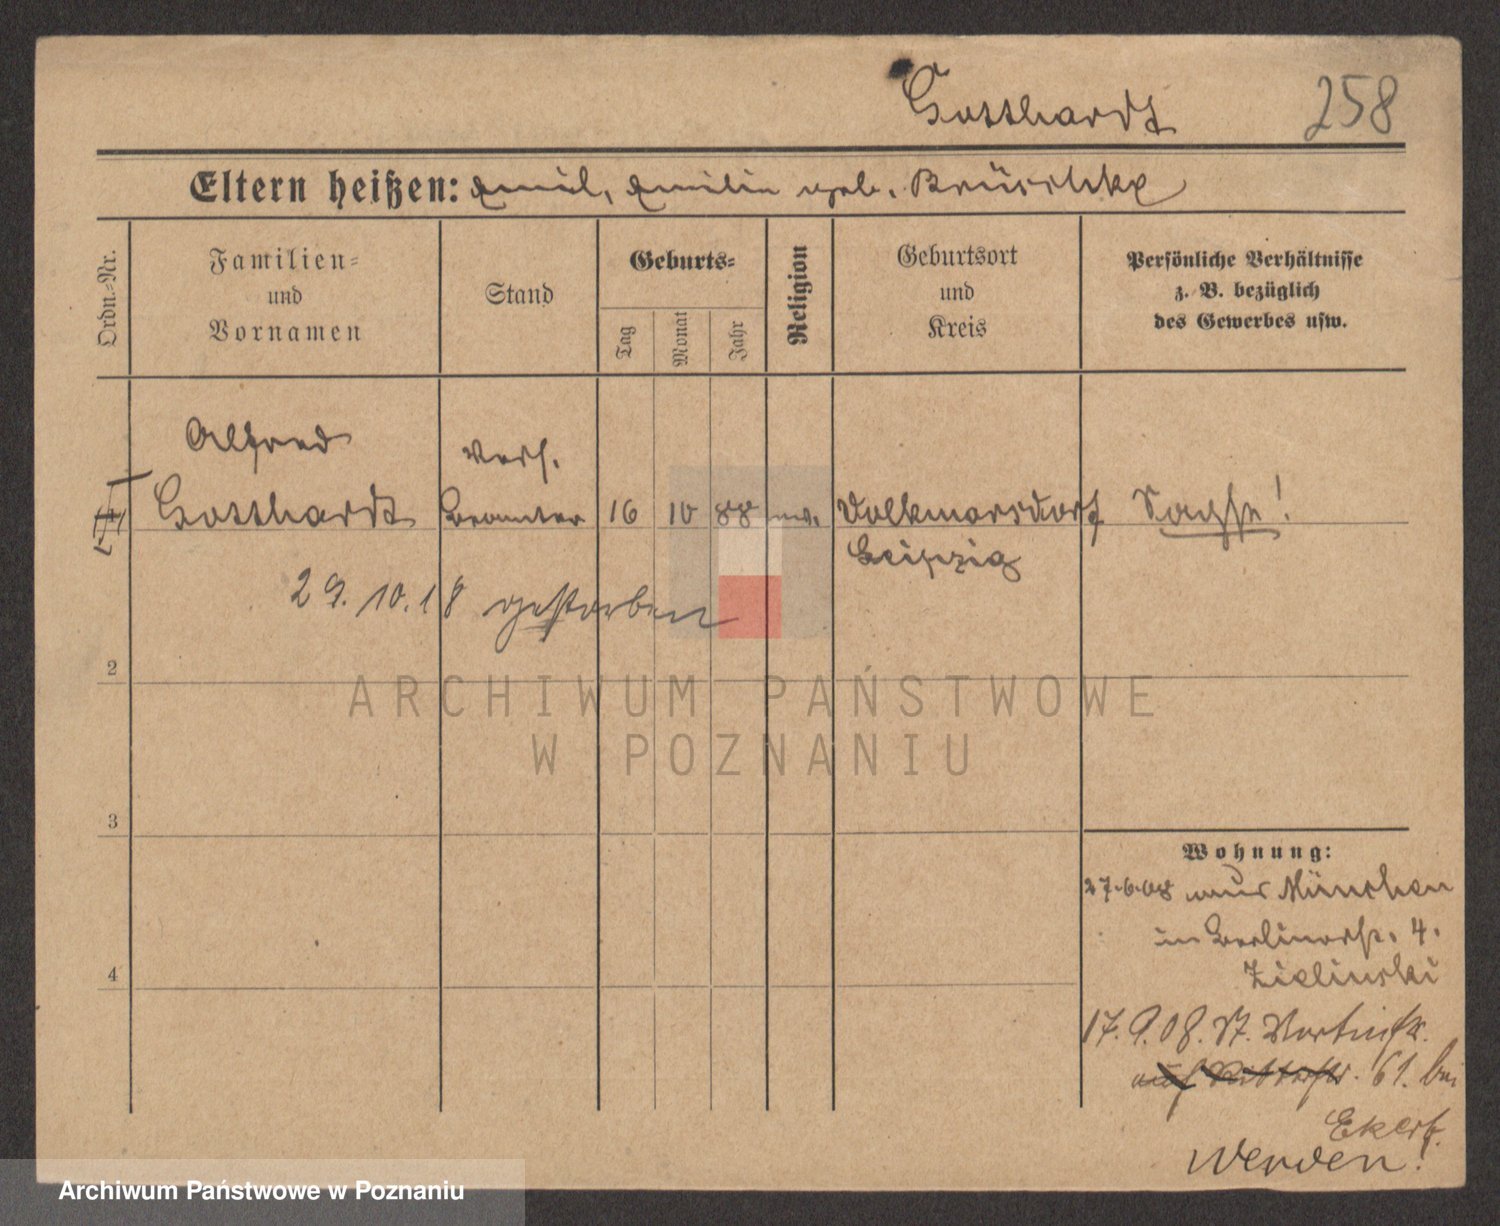 Gotthardt 258
Eltern heißen: Emil, Emilie geb. Brüschke
Ordn.-Nr.
Familien-
und
Vornamen
Stand
Geburts-
Tag
Monat
Jahr
Religion
Geburtsort
und
Kreis
Persönliche Verhältnisse
z. B. bezüglich
des Gewerbes usw.
Alfred
Gotthardt
Vers.
Beamter
16 10 88 ev.
Volkmarsdorf
Leipzig
Sachse!
29.10.18 gestorben
2
3
4
Wohnung:
27.6.08 aus München
in Berlinerstr. 4.
Zielinski
17.9.08. St. Martinstr.
61. bei
Ekert.
Werden!
ARCHIWUM PAŃSTWOWE
W POZNANIU
Archiwum Państwowe w Poznaniu